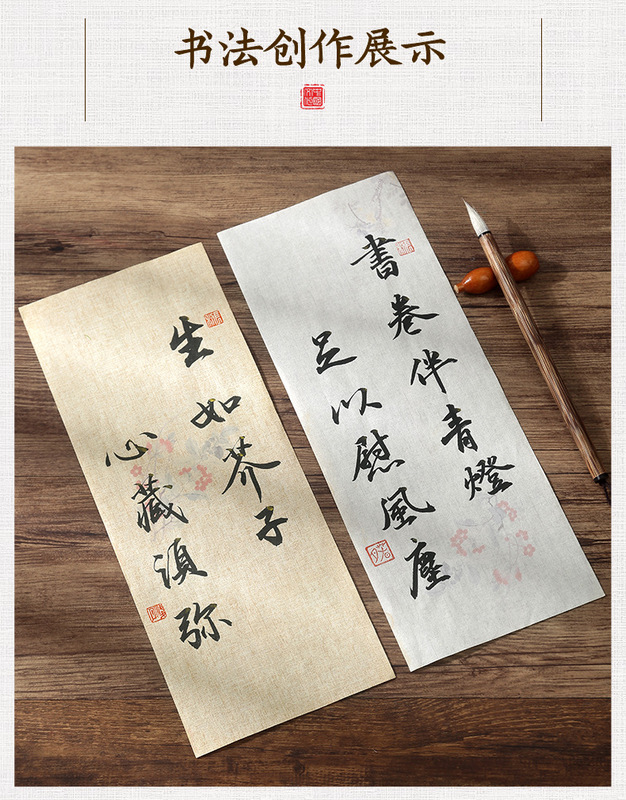 书法创作展示
書卷伴青燈
足以慰風塵
生如芥子
心藏須弥